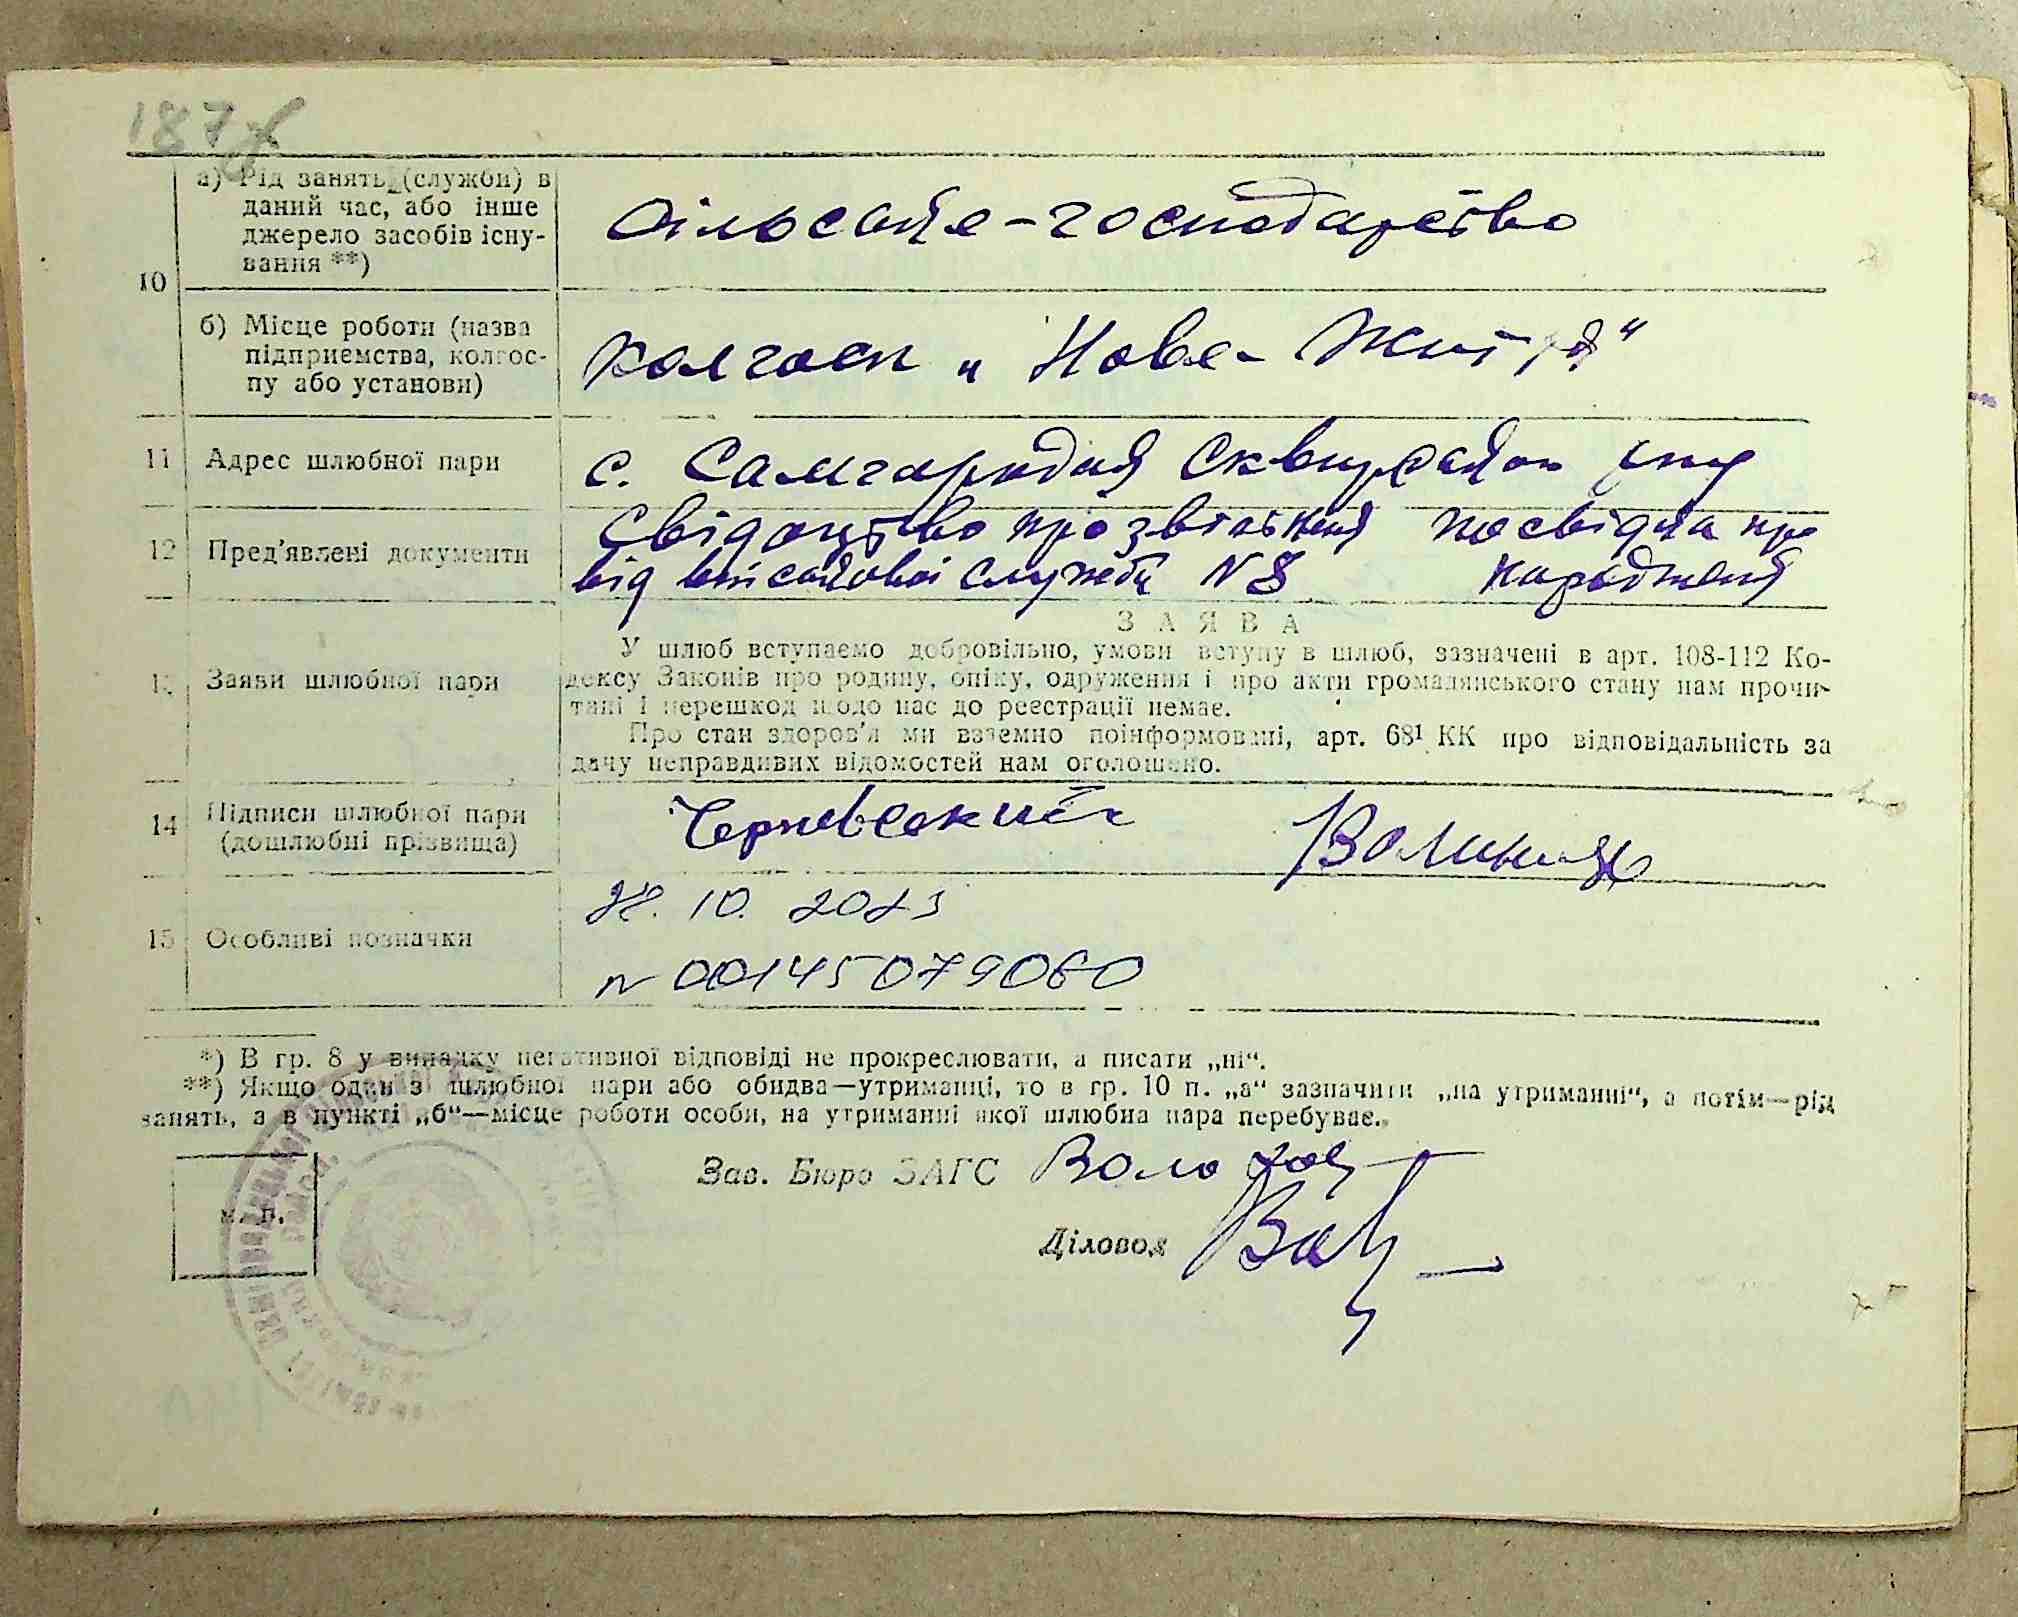 187
10
а) Рід занять (служби) в
даний час, або інше
джерело засобів існу-
вання **)
сільське-господарство
б) Місце роботи (назва
підприємства, колгос-
пу або установи)
колгосп „Нове-Життя“
11 Адрес шлюбної пари
с. Самгородня Сквирсько
12 Пред'явлені документи
Свідоцтво про звільненя посвідка про
від військової служби N8 народженя
13 Заяви шлюбної пари
ЗАЯВА
У шлюб вступаємо добровільно, умови вступу в шлюб, зазначені в арт. 108-112 Ко-
дексу Законів про родину, опіку, одруження і про акти громадянського стану нам прочи-
тані і перешкод щодо нас до реєстрації немає.
Про стан здоров'я ми взаємно поінформовані, арт. 68¹ КК про відповідальність за
дачу неправдивих відомостей нам оголошено.
14 Підписи шлюбної пари
(дошлюбні прізвища)
Чернявський Волинець
15 Особливі позначки
10. 2023
N 00145079060
*) В гр. 8 у випадку негативної відповіді не прокреслювати, а писати „ні“.
**) Якщо один з шлюбної пари або обидва—утриманці, то в гр. 10 п. „а“ зазначити „на утриманні“, а потім—рід
занять, а в пункті „б“—місце роботи особи, на утриманні якої шлюбна пара перебуває.
Зав. Бюро ЗАГС
Діловод
м. п.